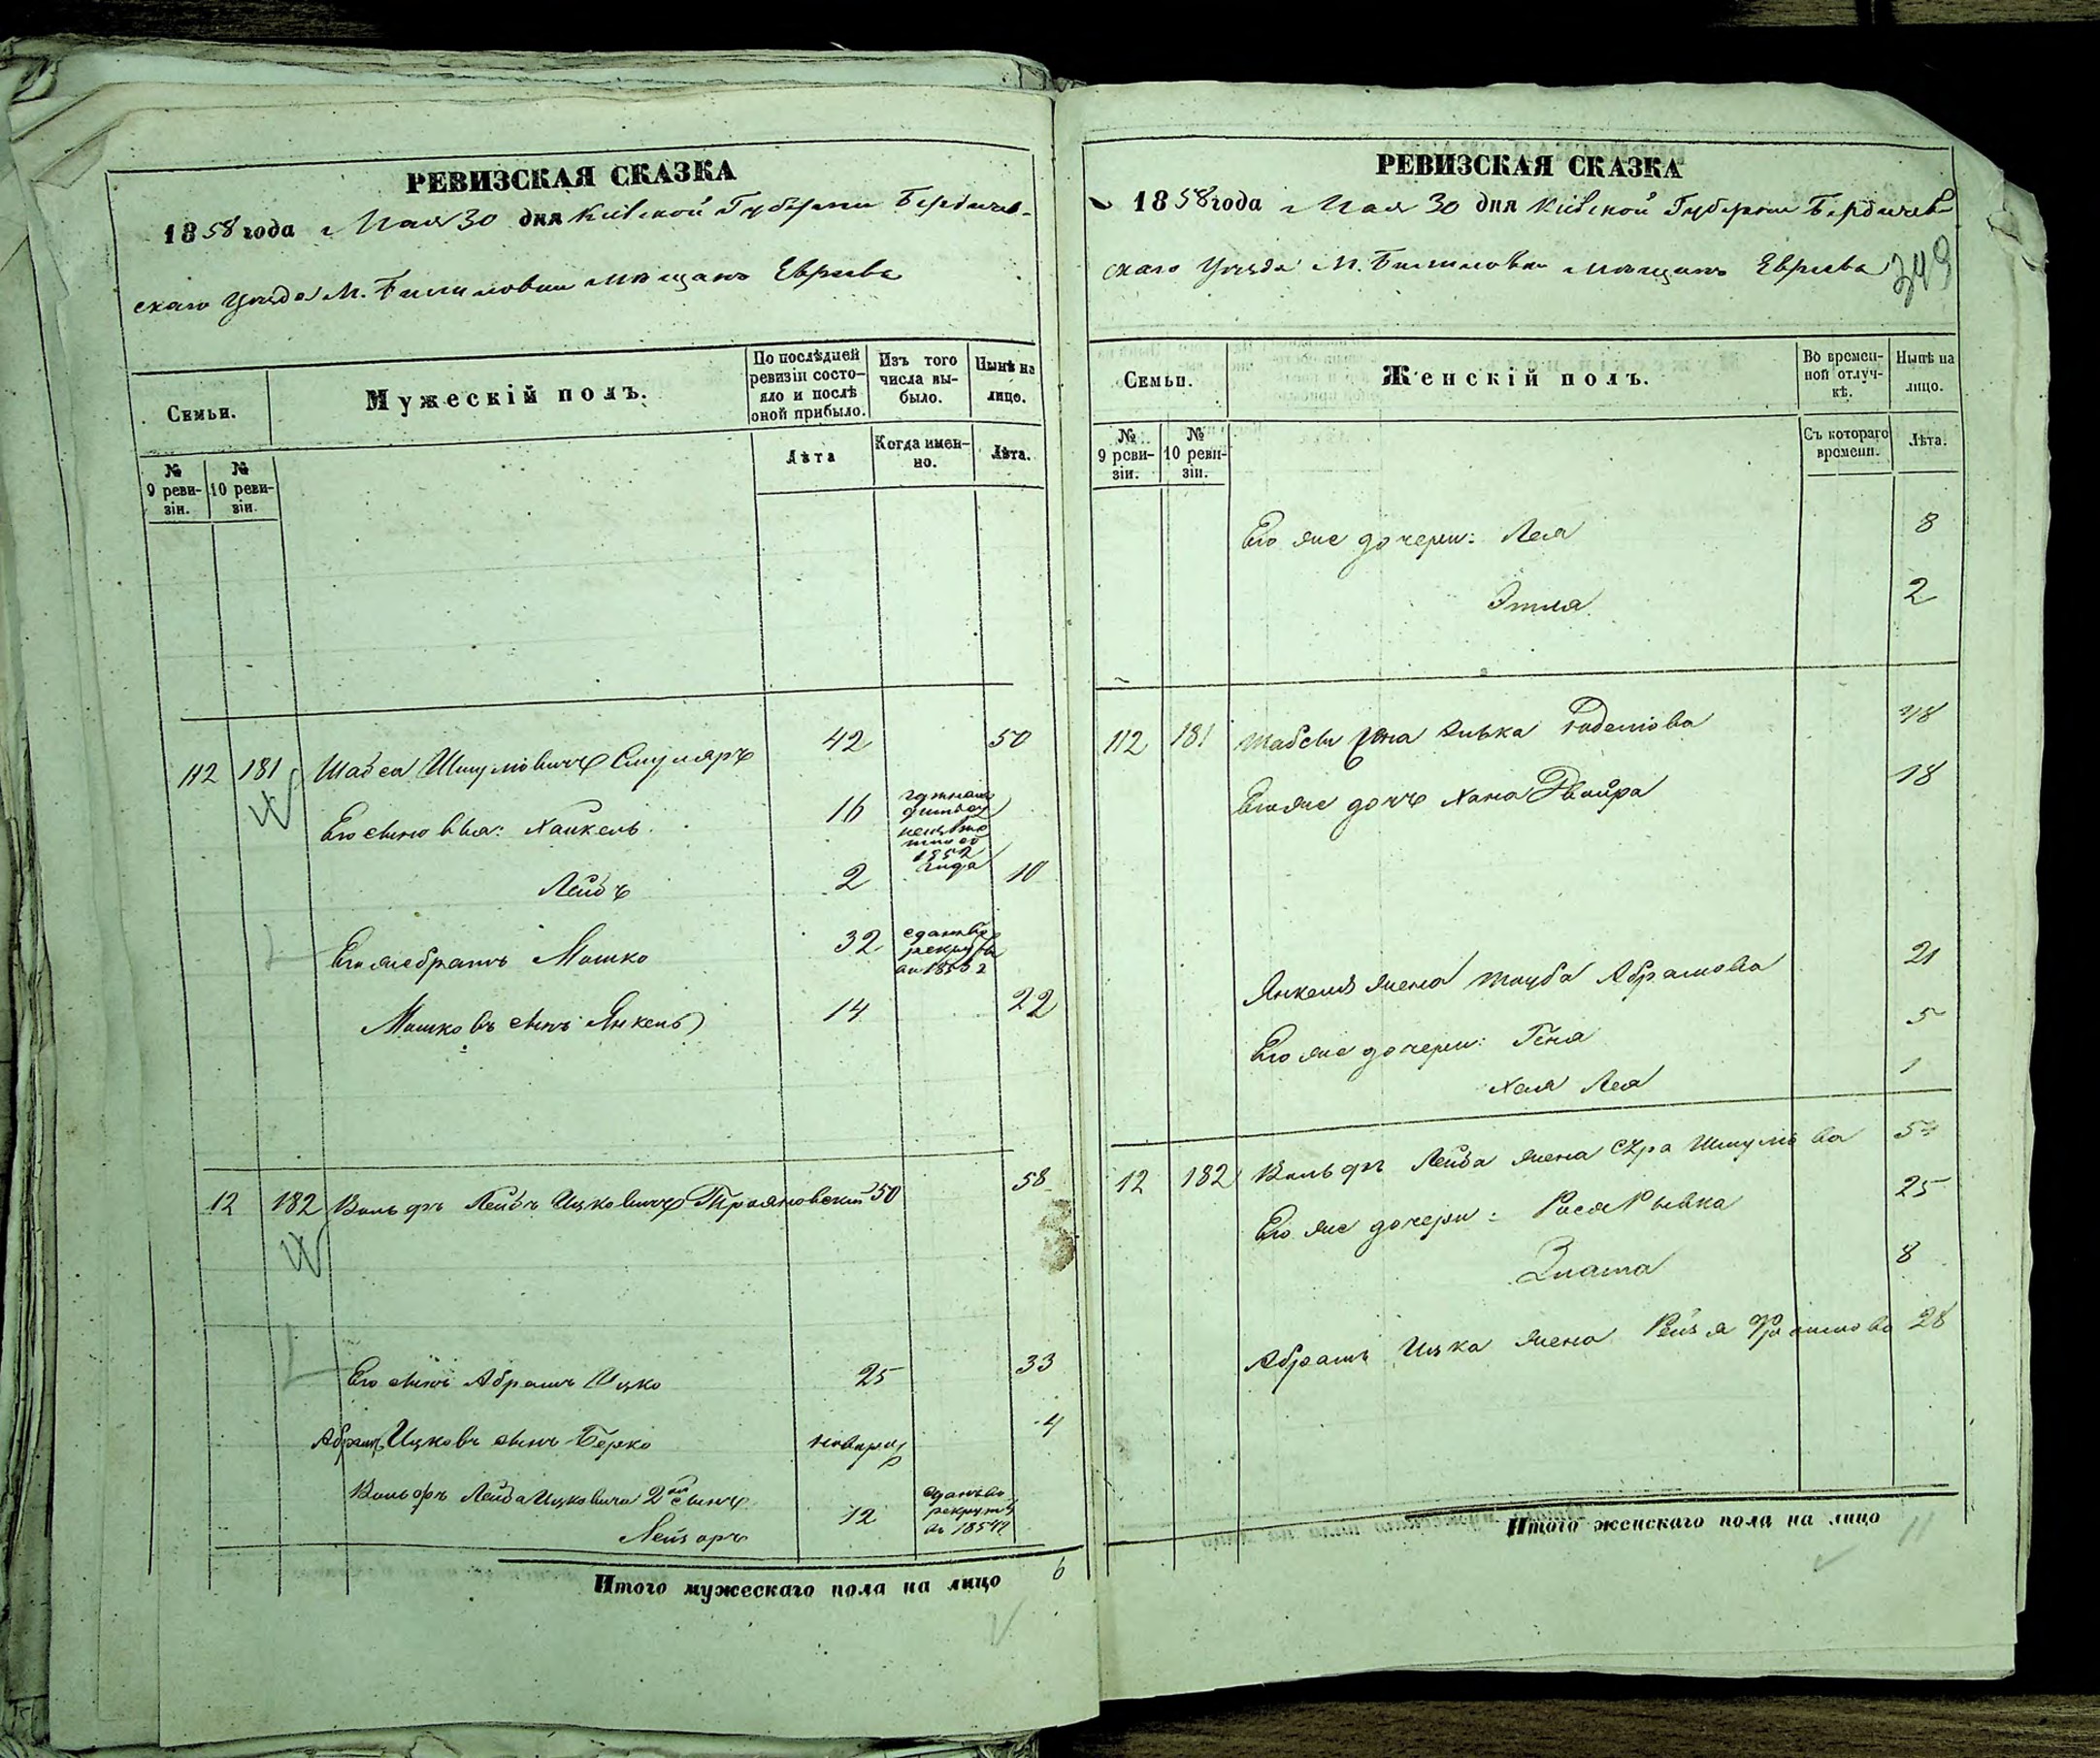 РЕВИЗСКАЯ СКАЗКА
1858 года Мая 30 дня Кіевской Губерніи Бердичев-
скаго Уѣзда М. Билиловки мѣщанъ Евреевъ
Семьи.
Мужескій полъ.
По послѣдней ревизіи состояло и послѣ оной прибыло.
Изъ того числа выбыло.
Нынѣ на лицо.
№ 9 ревизіи.
№ 10 ревизіи.
Лѣта
Когда именно.
Лѣта.
112 181 Шабса Шмулiовичъ Смуляръ 42 50
Его сыновья: Хайкель 16
1852 года
Лейбъ 2 10
Его же братъ Мошко 32 сданъ въ рекруты
Мошковъ сынъ Янкель 14 22
12 182 Вольфъ Лейбъ Ицковичъ Трояновский 50 58
Его сынъ Абрамъ Ицко 25 33
Абрамъ Ицковъ сынъ Берко новорож 4
Вольфъ Лейба Ицковича 2й сынъ
Лейзоръ 12 сданъ въ рекруты въ 1854 г
Итого мужескаго пола на лицо 6
РЕВИЗСКАЯ СКАЗКА
1858 года Мая 30 дня Кіевской Губерніи Бердичев-
скаго Уѣзда М. Билиловки мѣщанъ Евреевъ
349
Семьи.
Женскій полъ.
Во временной отлучкѣ.
Нынѣ на лицо.
№ 9 ревизіи.
№ 10 ревизіи.
Съ котораго времени.
Лѣта.
Его же дочери: Лея 8
Этля 2
112 181 Шабсы жена 48
Его же дочь Хана Двойра 18
Янкеля жена Тауба Абрамова 21
Его же дочери: Геня 5
Хая Лея 1
12 182 Вольфъ Лейба жена Сура Шмулiова
Его же дочери: Рося Рывка 25
Злата 8
Абрамъ Ицка жена Рейзя 28
Итого женскаго пола на лицо 11